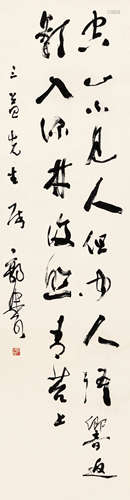 空山不見人但聞人語響返
影入深林復照青苔上
三益先生属